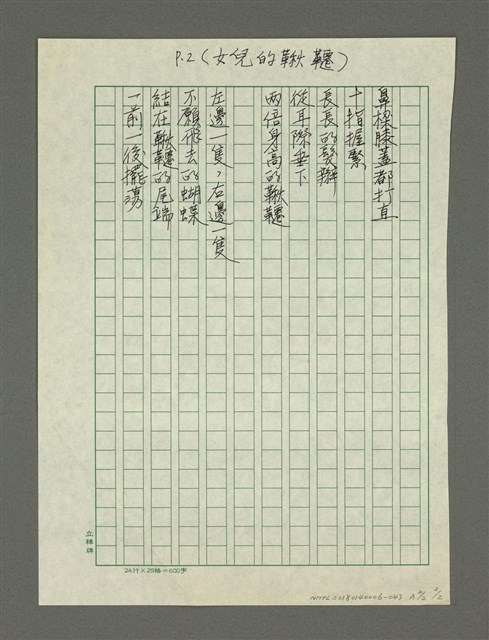 P.2(女兒的鞦韆)
鼻樑膝蓋都打直
十指握緊
長長的髮辮
從耳際垂下
兩倍身高的鞦韆
左邊一隻，右邊一隻
不願飛去的蝴蝶
結在鞦韆的尾端
一前一後擺盪
立祿牌
24行×25格=600字
NMTL20180140006-043